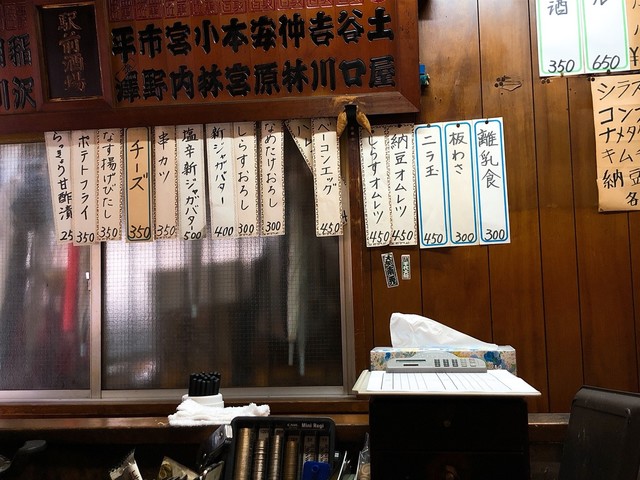 駅前酒場
土谷吉神安本小宮市平
屋口川林原宮林内野澤
稲
沢
川
酒
350
650
シラス
コン
ナメタ
キム
納豆
各
離乳食
300
板わさ
300
ニラ玉
450
納豆オムレツ
450
しらすオムレツ
450
ベーコンエッグ
450
なめたけおろし
300
しらすおろし
300
新ジャガバター
400
塩辛新ジャガバター
500
串カツ
350
チーズ
350
なす揚げびたし
350
ポテトフライ
350
らっきょう甘酢漬
25